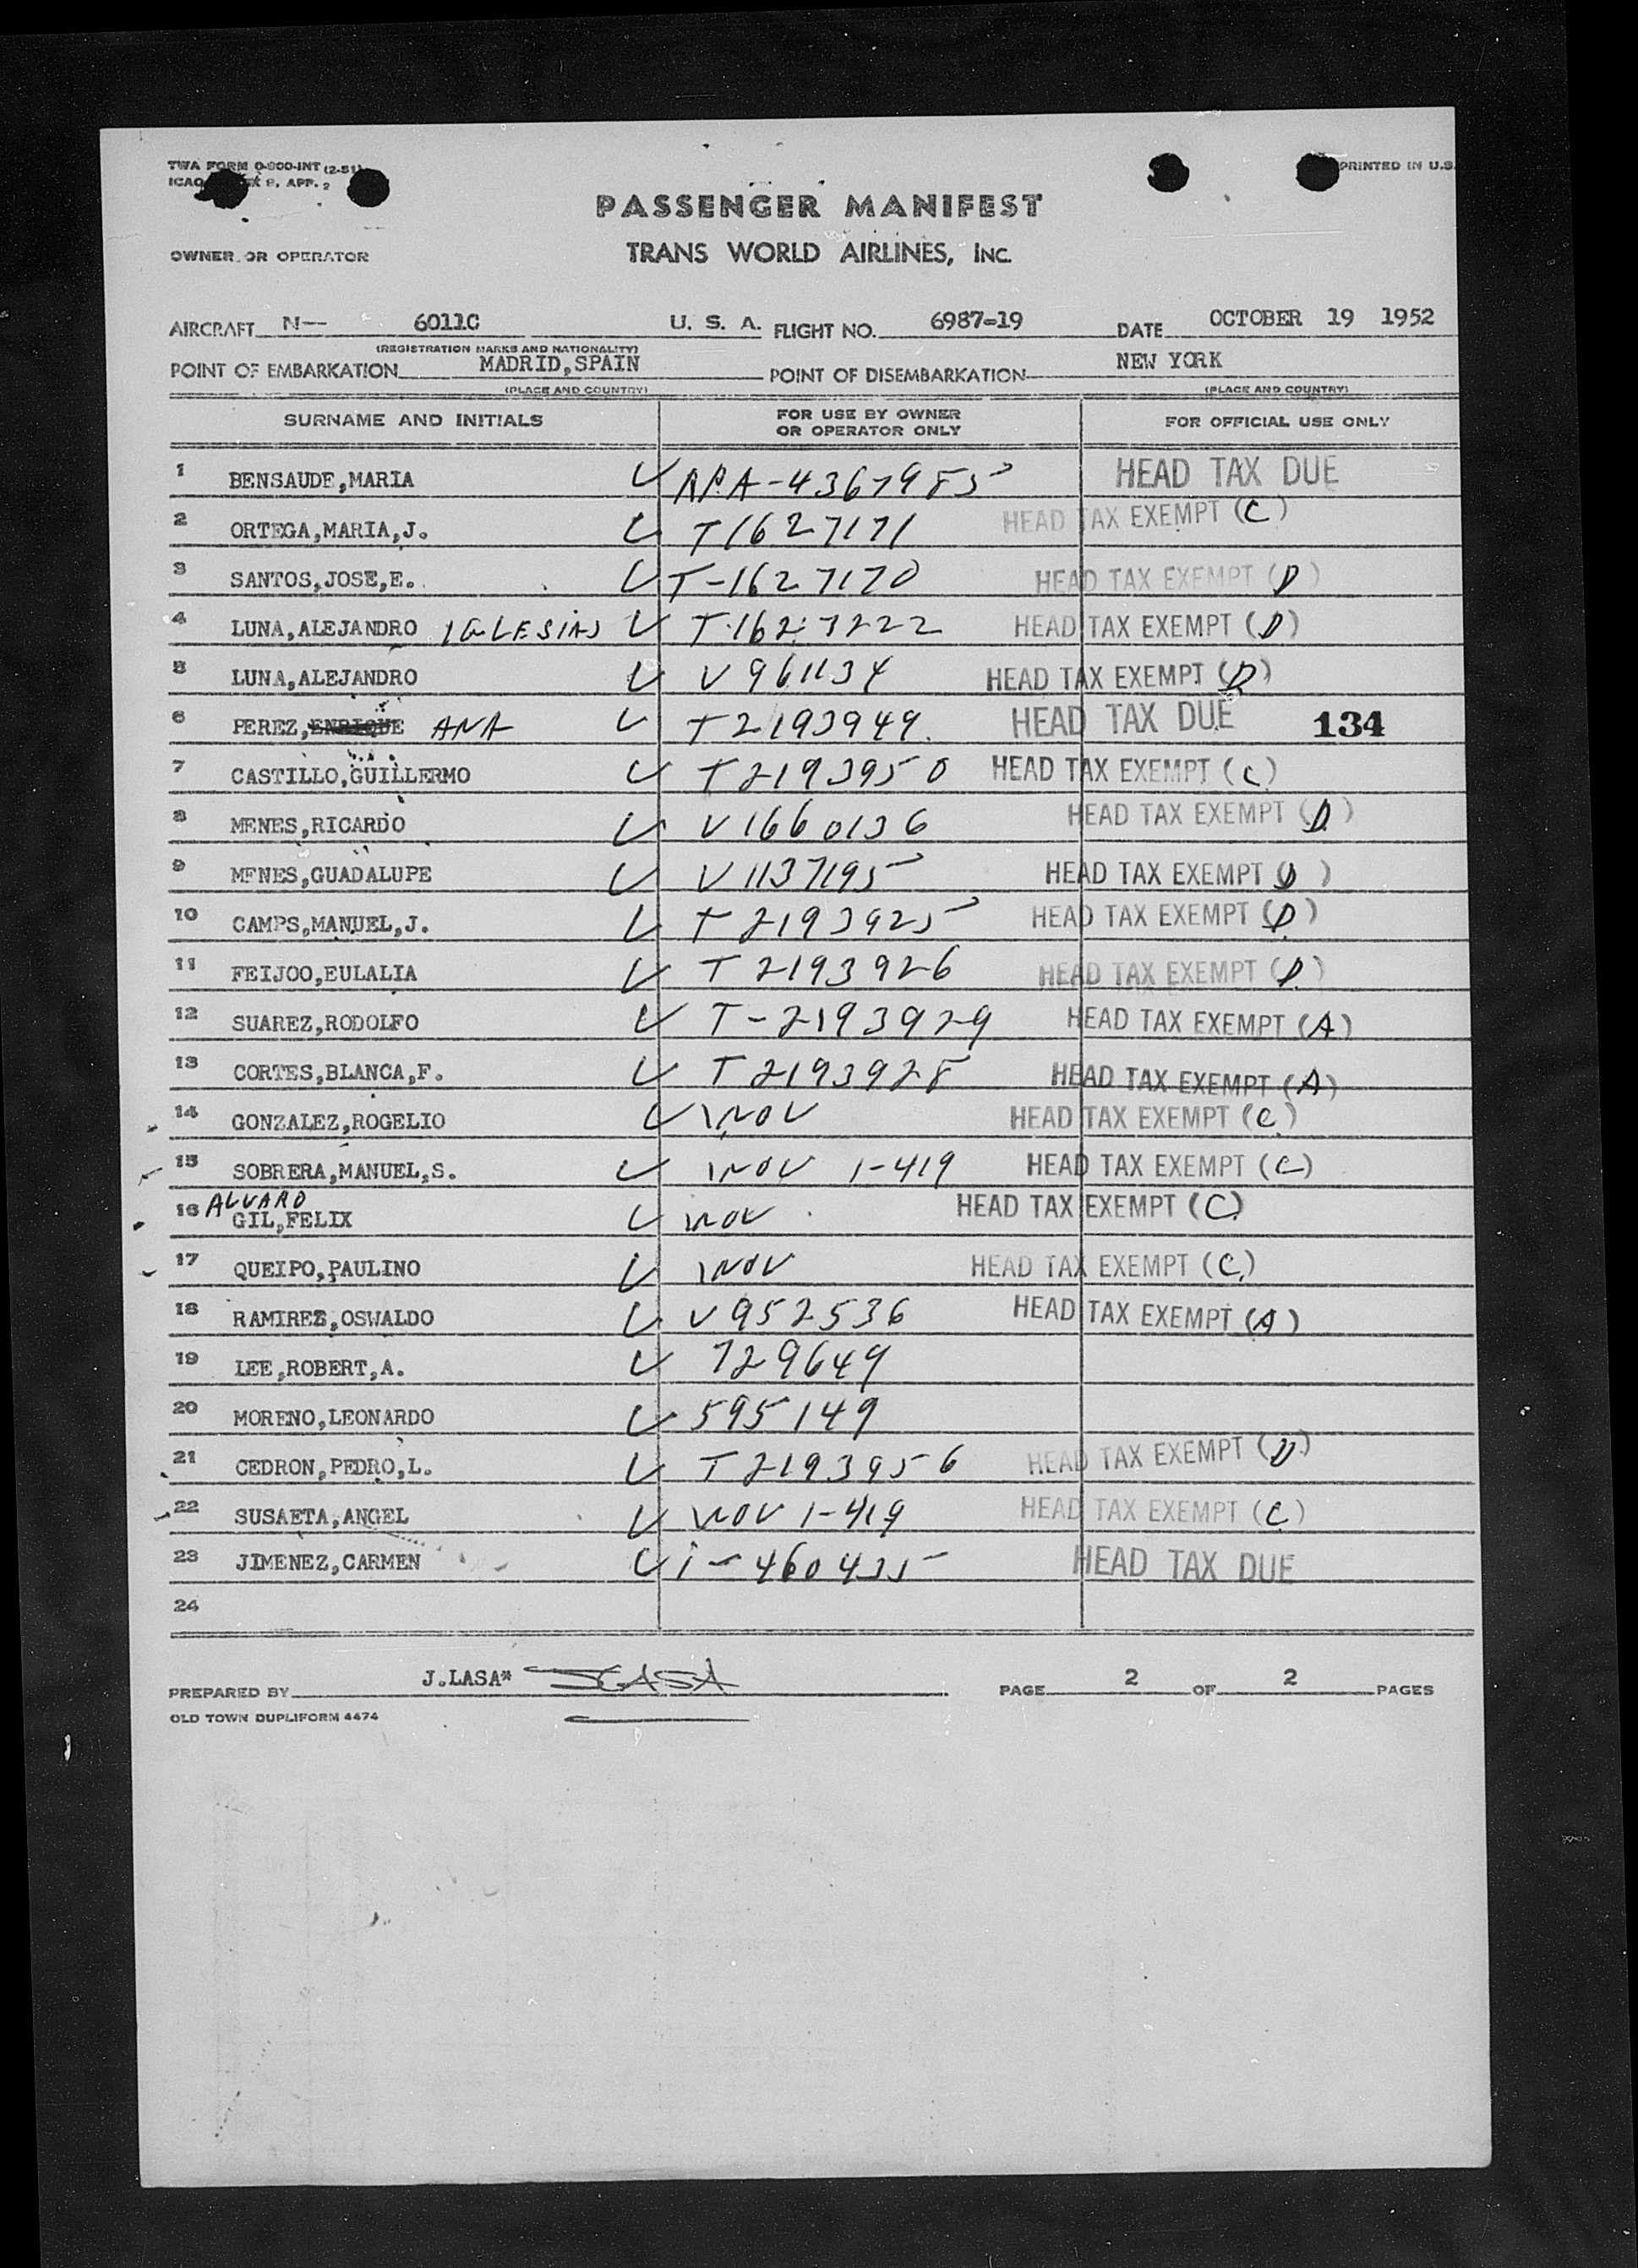 TWA FORM O-800-INT (2-51)
PRINTED IN U.S.
ICAO P. APP. 2
PASSENGER MANIFEST
OWNER OR OPERATOR
TRANS WORLD AIRLINES, INC.
AIRCRAFT N-- 6011C U. S. A. FLIGHT NO. 6987-19 DATE OCTOBER 19 1952
(REGISTRATION MARKS AND NATIONALITY)
POINT OF EMBARKATION MADRID,SPAIN POINT OF DISEMBARKATION NEW YORK
(PLACE AND COUNTRY) (PLACE AND COUNTRY)
SURNAME AND INITIALS FOR USE BY OWNER OR OPERATOR ONLY FOR OFFICIAL USE ONLY
1 BENSAUDE,MARIA ARA-4367985 HEAD TAX DUE
2 ORTEGA,MARIA,J. T1627171 HEAD TAX EXEMPT (C)
3 SANTOS,JOSE,E. T-1627170 HEAD TAX EXEMPT (D)
4 LUNA,ALEJANDRO IGLESIAS T-1627222 HEAD TAX EXEMPT (D)
5 LUNA,ALEJANDRO V961134 HEAD TAX EXEMPT (D)
6 PEREZ,ENRIQUE ANA T2193949 HEAD TAX DUE 134
7 CASTILLO,GUILLERMO T2193950 HEAD TAX EXEMPT (C)
8 MENES,RICARDO V1660136 HEAD TAX EXEMPT (D)
9 MENES,GUADALUPE V1137195 HEAD TAX EXEMPT (D)
10 CAMPS,MANUEL,J. T2193925 HEAD TAX EXEMPT (D)
11 FEIJOO,EULALIA T2193926 HEAD TAX EXEMPT (D)
12 SUAREZ,RODOLFO T-2193929 HEAD TAX EXEMPT (A)
13 CORTES,BLANCA,F. T2193928 HEAD TAX EXEMPT (A)
14 GONZALEZ,ROGELIO INOV HEAD TAX EXEMPT (C)
15 SOBRERA,MANUEL,S. INOV 1-419 HEAD TAX EXEMPT (C)
ALVARO
16 GIL,FELIX INOV HEAD TAX EXEMPT (C)
17 QUEIPO,PAULINO INOV HEAD TAX EXEMPT (C)
18 RAMIREZ,OSWALDO V952536 HEAD TAX EXEMPT (A)
19 LEE,ROBERT,A. 729649
20 MORENO,LEONARDO 595149
21 CEDRON,PEDRO,L. T2193956 HEAD TAX EXEMPT (D)
22 SUSAETA,ANGEL INOV 1-419 HEAD TAX EXEMPT (C)
23 JIMENEZ,CARMEN i-460435 HEAD TAX DUE
24
PREPARED BY J.LASA* JLASA PAGE 2 OF 2 PAGES
OLD TOWN DUPLIFORM 4474